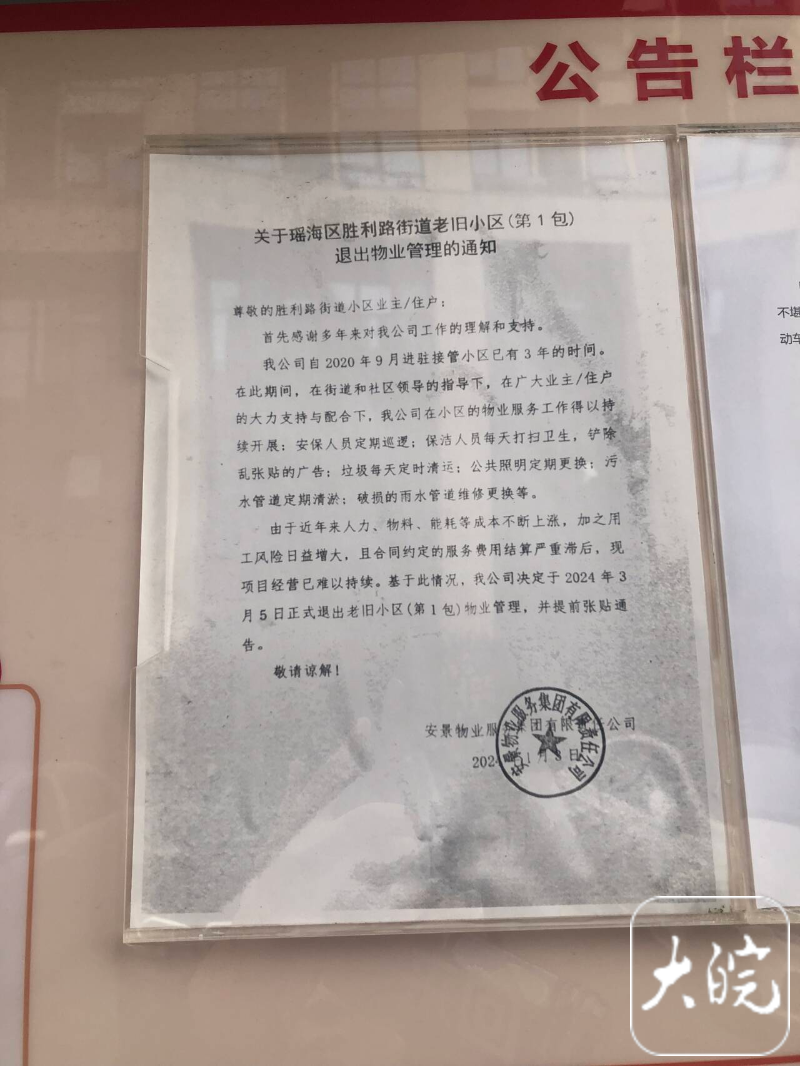 公告栏
关于瑶海区胜利路街道老旧小区(第1包)
退出物业管理的通知
尊敬的胜利路街道小区业主/住户：
首先感谢多年来对我公司工作的理解和支持。
我公司自2020年9月进驻接管小区已有3年的时间。
在此期间，在街道和社区领导的指导下，在广大业主/住户
的大力支持与配合下，我公司在小区的物业服务工作得以持
续开展：安保人员定期巡逻；保洁人员每天打扫卫生，铲除
乱张贴的广告；垃圾每天定时清运；公共照明定期更换；污
水管道定期清淤；破损的雨水管道维修更换等。
由于近年来人力、物料、能耗等成本不断上涨，加之用
工风险日益增大，且合同约定的服务费用结算严重滞后，现
项目经营已难以持续。基于此情况，我公司决定于2024年3
月5日正式退出老旧小区(第1包)物业管理，并提前张贴通
告。
敬请谅解！
安景物业服 集团有限 公司
202 月 日
安景物业服务集团有限责任公司
不堪
动车
大皖